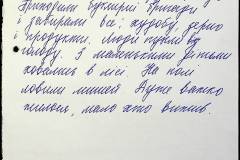 Приходили буксирні бригади
і забирали все: худобу, зерно
і продукти. Люди пухли від
голоду. З маленькими дітьми
ховались в лісі. На полі
ловили мишей. Дуже важко
жилося, мало хто вижив.